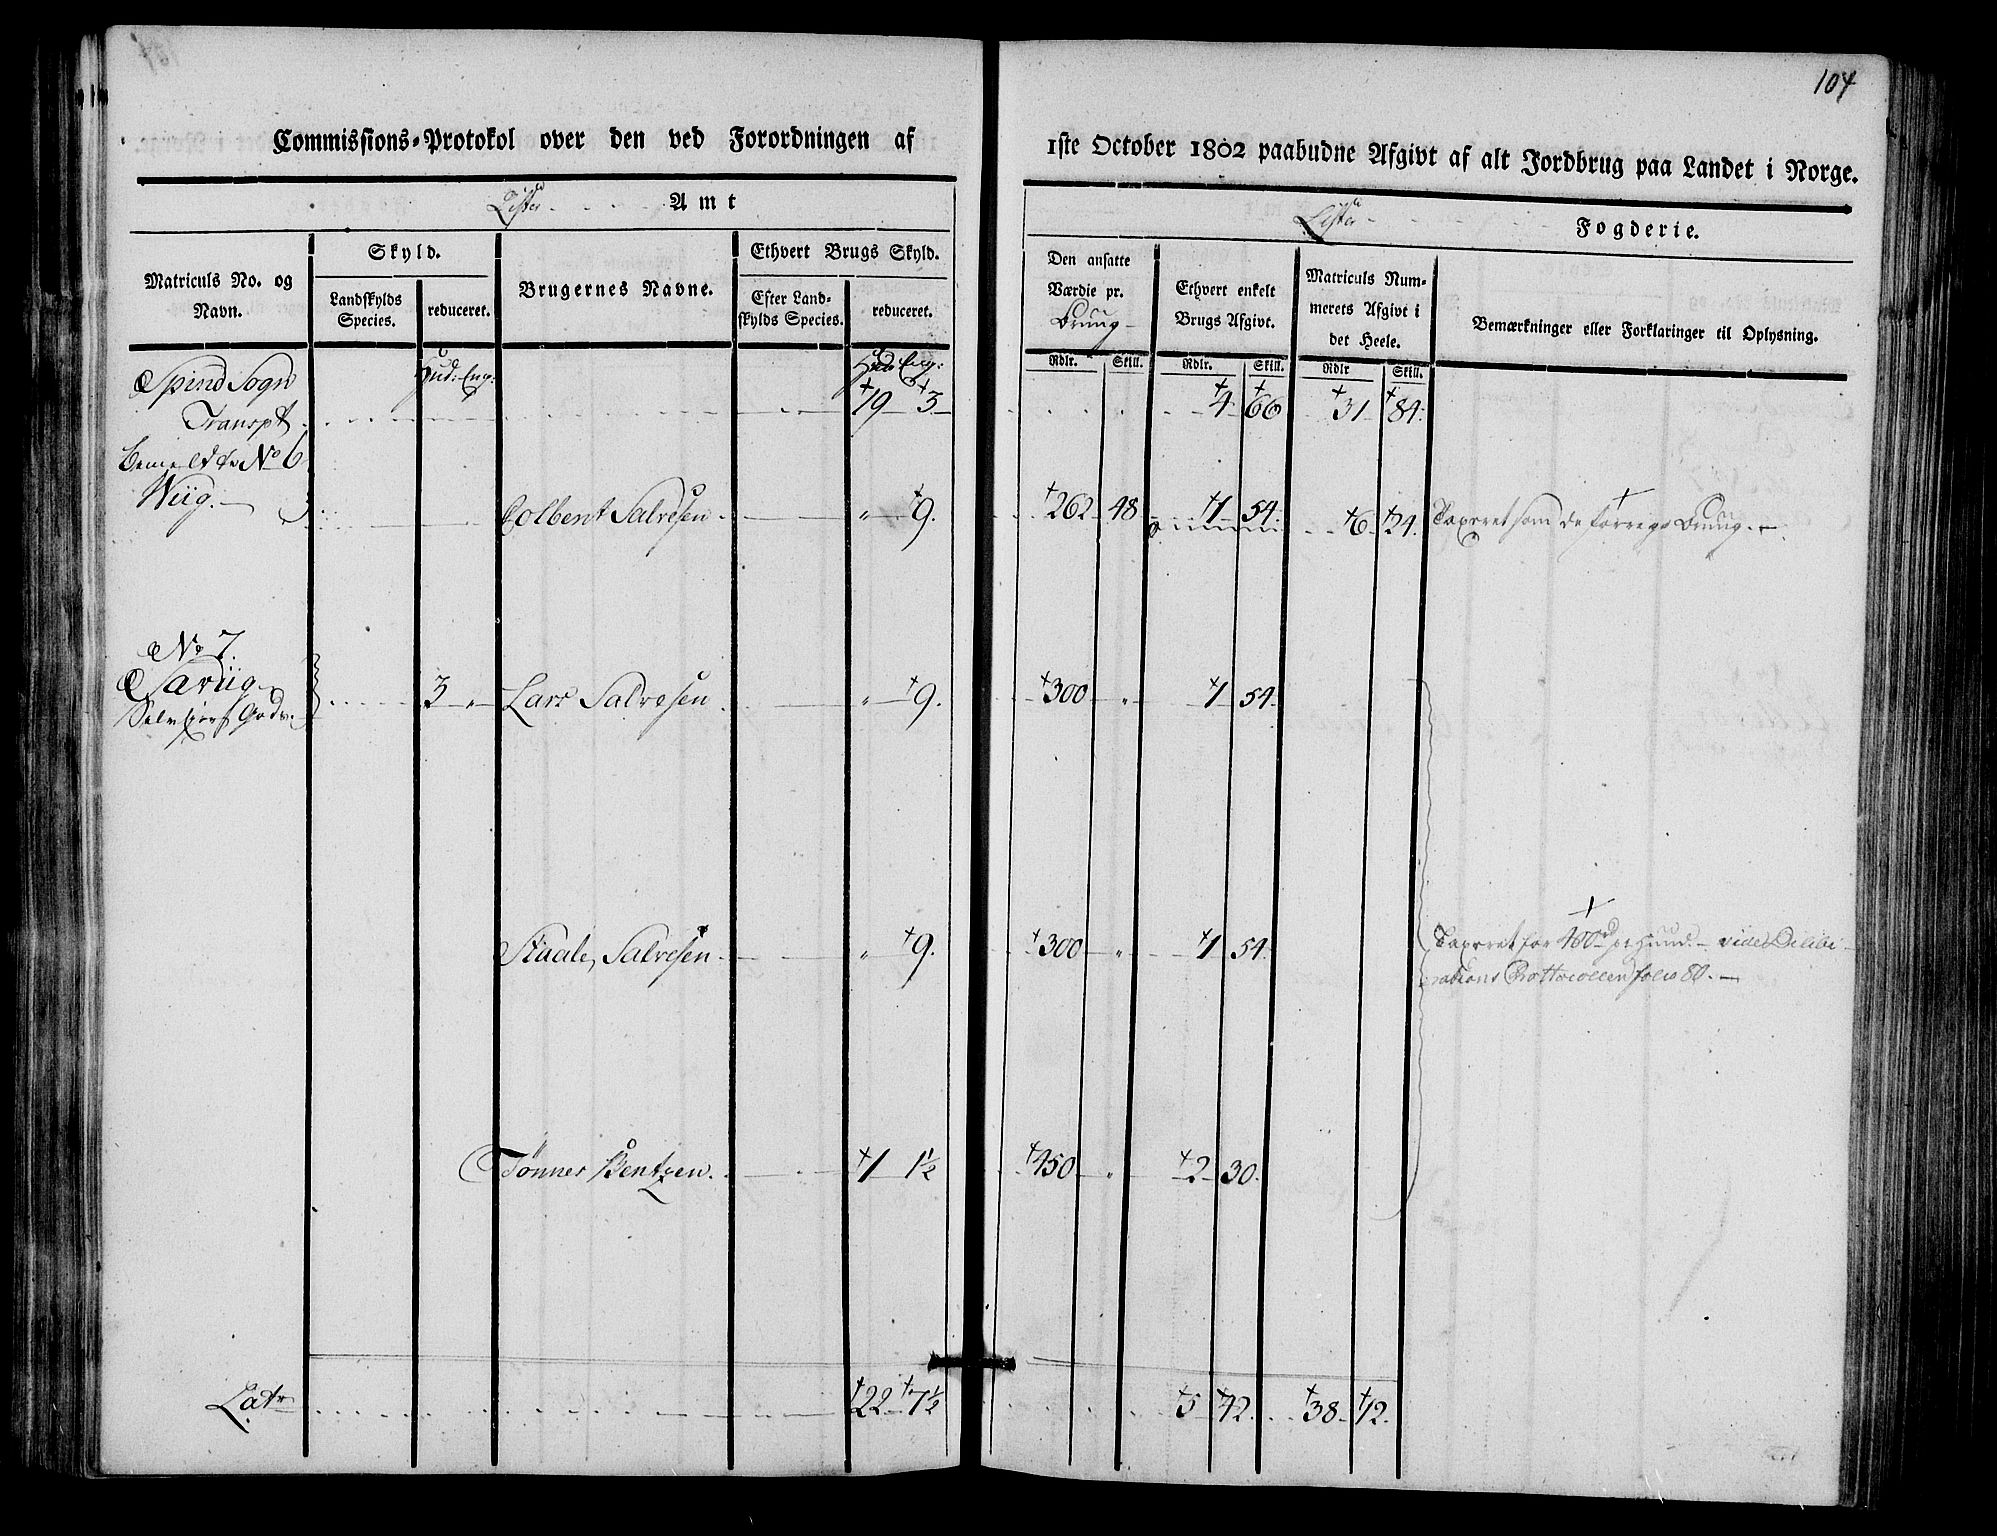 104
Commissions-Protokol over den ved Forordningen af 1ste October 1802 paabudne Afgivt af alt Jordbrug paa Landet i Norge.
Lister Amt
Lister Fogderie.
Matriculs No. og Navn.
Skyld.
Landskylds Species.
reduceret.
Brugernes Navne.
Ethvert Brugs Skyld.
Efter Landskylds Species.
reduceret.
Den ansatte Værdie pr. Bruug
Ethvert enkelt Brugs Afgivt.
Matriculs Nummerets Afgivt i det Heele.
Bemærkninger eller Forklaringer til Oplysning.
Rdlr. Skill. Rdlr. Skill. Rdlr Skill.
Spind Sogn Hud: Eng: Hud: Eng:
Transpt 19 3 4 66 31 84
bemeldte No 6
Wiig. Colbent Salvesen " 9. 262 48 1 54 6 24. Taxeret som de forrige Bruug.
No 7.
Sariig 3 " Lars Salvesen " 9. 300 " 1 54.
Selv Gods.
Staale Salvesen " 9. 300 " 1 54. Taxeret for 400 rd pr Huud. vide Delibe-
rations Prottocollen folio 80.
Tønnes Bentzen. 1 1½ 450 " 2 30.
Latr 22 7½ 5 42. 38 12.